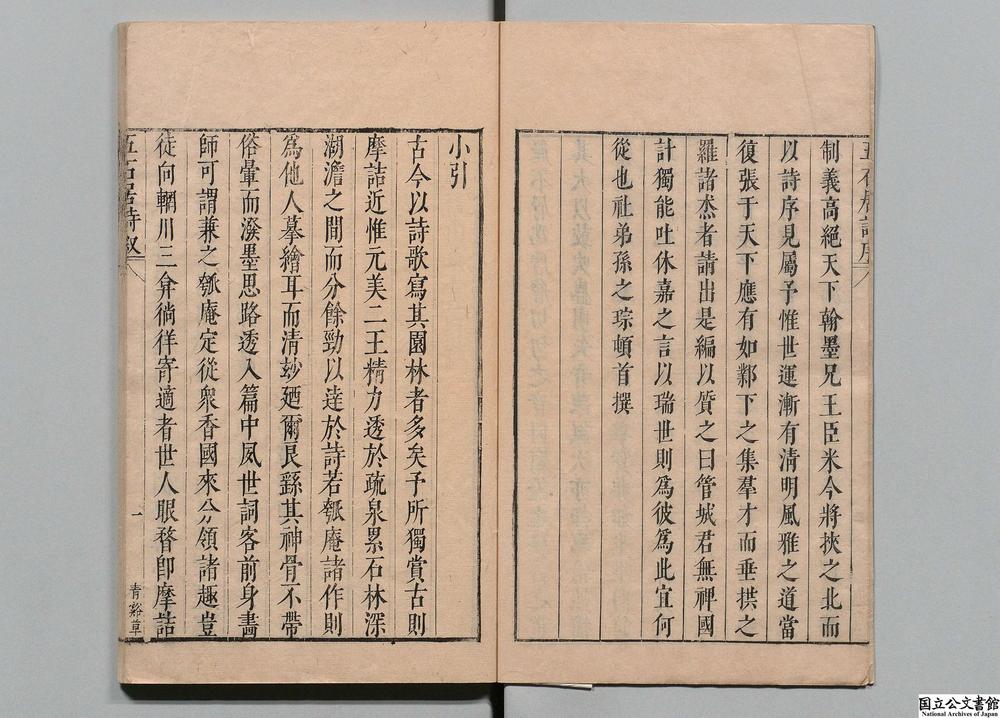 制義高絕天下翰墨兄王臣米今將挾之北而
以詩序見屬予惟世運漸有清明風雅之道當
復張于天下應有如鄴下之集羣才而垂拱之
羅諸焘者請出是編以質之曰管城君無裨國
計獨能吐休嘉之言以瑞世則爲彼爲此宜何
從也社弟孫之琮頓首撰
小引
古今以詩歌寫其園林者多矣予所獨賞古則
摩詰近惟元美二王精力透於疏泉累石林深
湖澹之間而分餘勁以達於詩若瓠庵諸作則
爲他人摹繪耳而清玅廼爾良繇其神骨不帶
俗暈而潑墨思路透入篇中夙世詞客前身畵
師可謂兼之瓠庵定從衆香國來分領諸趣豈
徒向輞川三弇徜徉寄適者世人眼瞀卽摩詰
五石居詩叙
一
青谿草
国立公文書館
National Archives of Japan